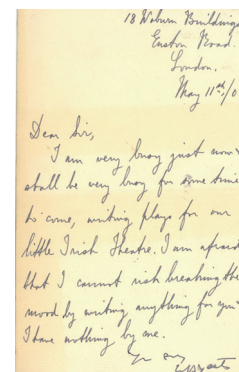 18 Woburn Buildings
Euston Road.
London.
May 11th/0
Dear Sir,
I am very busy just now &
shall be very busy for some time
to come, writing plays for our
little Irish Theatre. I am afraid
that I cannot risk breaking the
mood by writing anything for you.
I have nothing by me.
Yrs sny
WBYeats